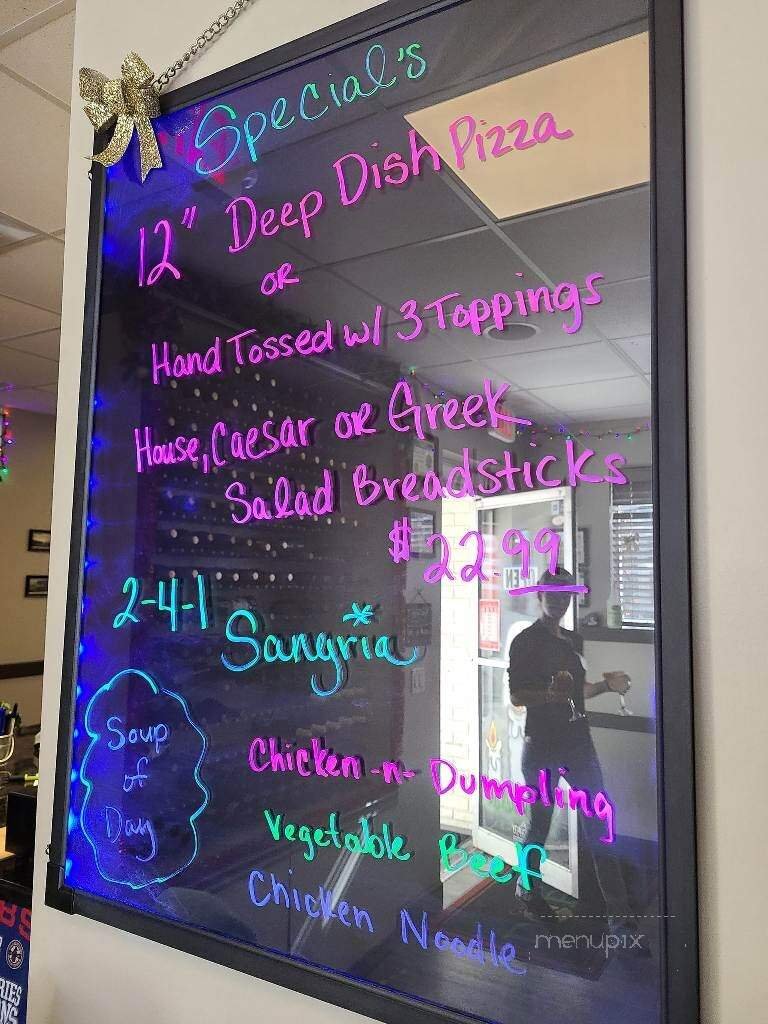 Special's
12" Deep Dish Pizza
OR
Hand Tossed w/ 3 Toppings
House, Caesar OR Greek
Salad Breadsticks
$22.99
2-4-1 Sangria*
Soup
of
Day
Chicken-n-Dumpling
Vegetable Beef
Chicken Noodle
menupix